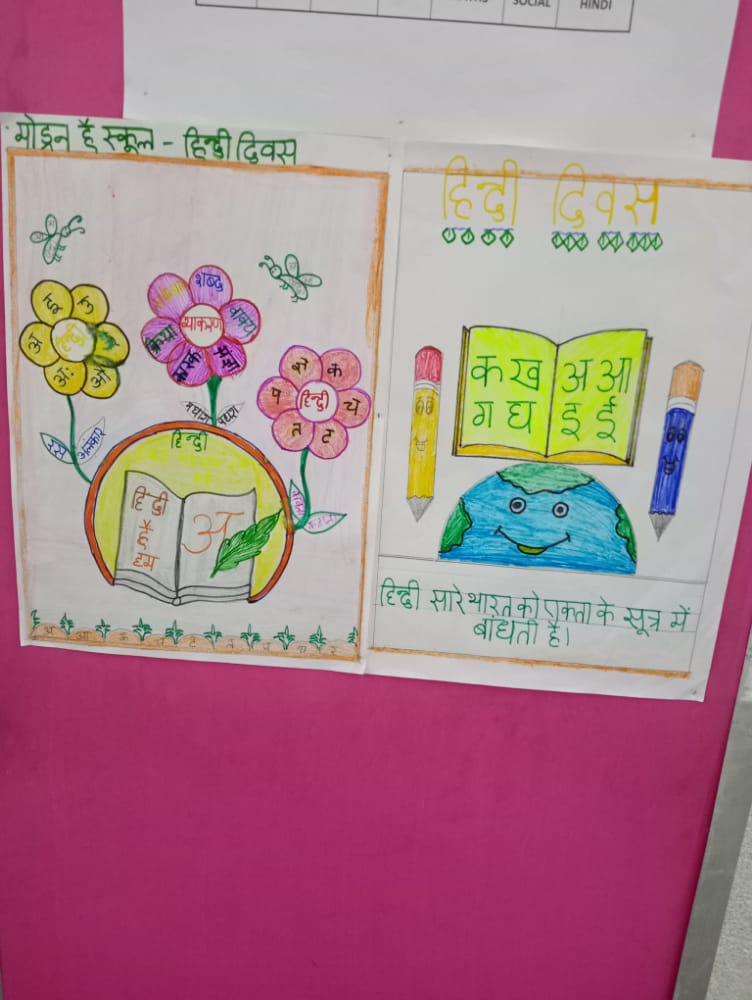 SOCIAL
HINDI
मोड्रन है स्कूल - हिन्दी दिवस
हिन्दी
अ
अः
ओ
व्याकरण
शब्द
वाक्य
क्रिया
कारक
हिन्दी
क
च
ट
त
प
रस
अलंकार
हिन्दी
हिन्दी
है
हम
अ
हिन्दी दिवस
क ख
ग घ
अ आ
इ ई
हिन्दी सारे भारत को एकता के सूत्र में
बांधती है।